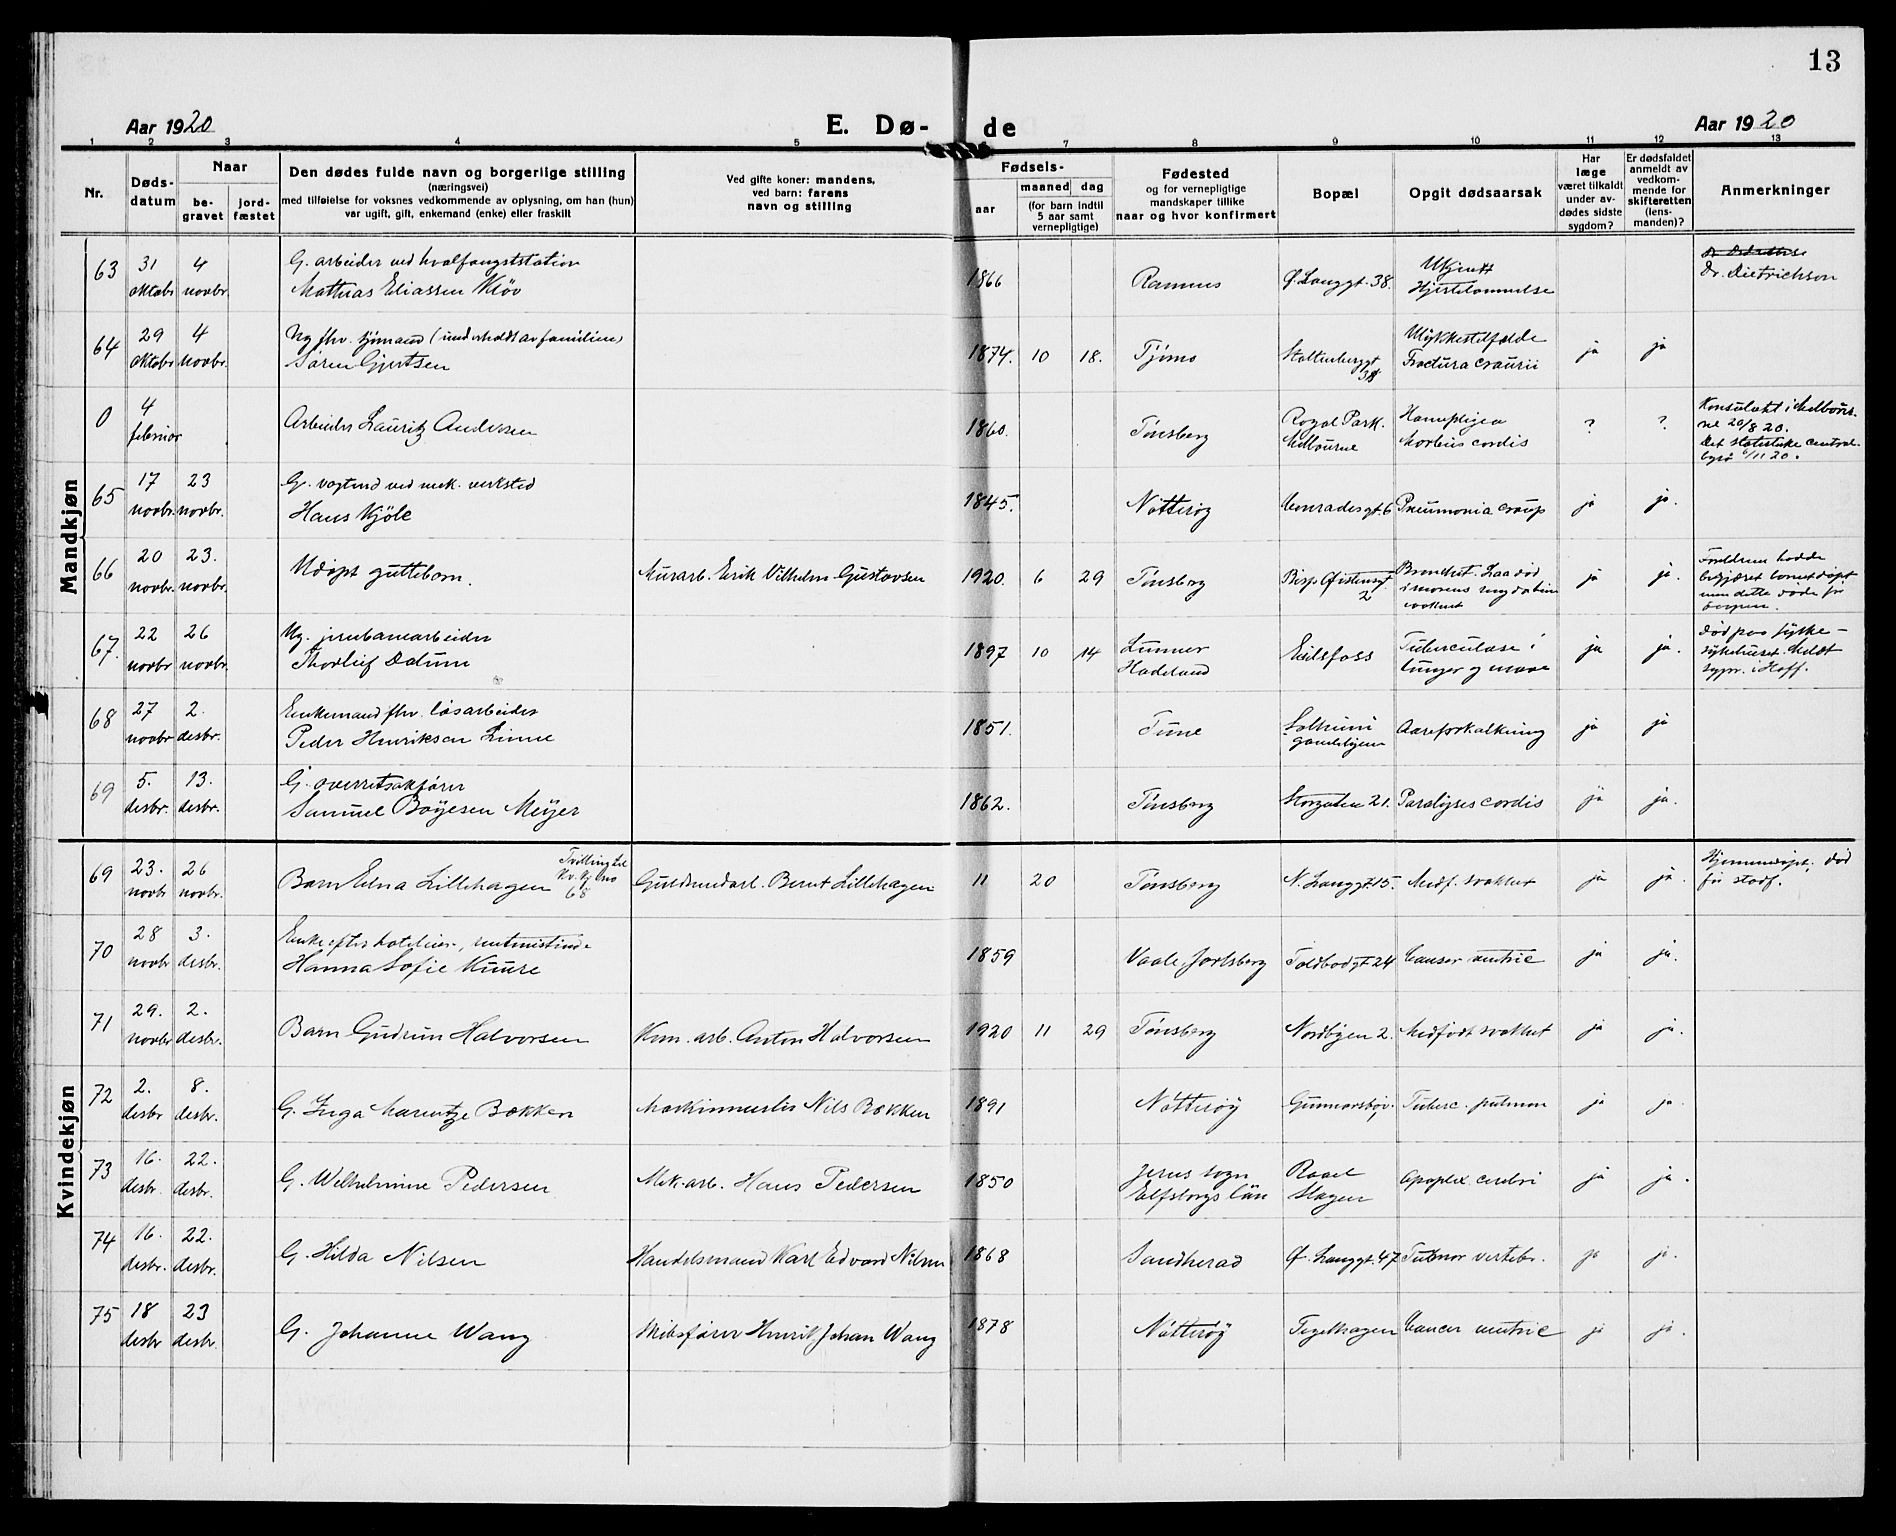 13
Aar 1920
E. Dø-de
Aar 1920
1 2 3 4 5 7 8 9 10 11 12 13
Nr.
Døds-
datum
Naar
be-
gravet
jord-
fæstet
Den dødes fulde navn og borgerlige stilling
(næringsvei)
med tilføielse for voksnes vedkommende av oplysning, om han (hun)
var ugift, gift, enkemand (enke) eller fraskilt
Ved gifte koner: mandens,
ved barn: farens
navn og stilling
Fødsels-
aar
maaned
dag
(for barn indtil
5 aar samt
vernepligtige)
Fødested
og for vernepligtige
mandskaper tillike
naar og hvor konfirmert
Bopæl
Opgit dødsaarsak
Har
læge
været tilkaldt
under av-
dødes sidste
sygdom?
Er dødsfaldet
anmeldt av
vedkom-
mende for
skifteretten
(lens-
manden)?
Anmerkninger
Mandkjøn
63
31
oktobr
4
novbr.
G. arbeider ved hvalfangststation
Mathias Eliassen Kløv
1866
Ramnes
Ø. Langgt. 38.
Hjertelammelse
Dr. Dietrichson
64
29
oktobr
4
novbr.
Ug fhv. sjømand (underholdt av familien)
Søren Gjertsen
1874. 10 18.
Tjømø
Stoltenberggt
38
Ulykkestilfælde
Fractura cranii
ja
ja
0
4
februar
Arbeider Lauritz Andersen
1860.
Tønsberg
Royal Park.
Melbourne
Morbus cordis
?
?
Konsulatet i Melbour-
ne 20/8 20.
Det statistiske central-
byrå 6/11 20.
65
17
novbr.
23
novbr.
G. vogtmd ved mek. verksted
Hans Kjøle
1845.
Nøtterøy
Conradisgt. 6
Pneumonia croup
ja
ja.
66
20
novbr.
23.
novbr.
Udøpt guttebarn.
Murarb. Erik Vilhelm Gustavsen
1920. 6 29
Tønsberg
Bisp Øistensgt.
2
Bronchit. Laa død
i morens seng
ja
ja.
Forældrene hadde
begjæret barnet døpt
men dette døde før
67.
22
novbr
26
novbr.
Ug. jernbanearbeider
Thorleif Dalum
1897 10 14
Lunner
Hadeland
Eidsfoss
Tuberculose i
lunger og mave
ja
ja.
Død paa
sykehuset. Meldt
sypr. i Hoff.
68
27
novbr
2.
desbr.
Enkemand fhv. løsarbeider
Peder Henriksen Linne
1851.
Tune
Solheim
gamlehjem
Aareforkalkning
ja
ja
69
5.
desbr.
13.
desbr.
G. overretsakfører
Samuel Bøyesen Meyer
1862.
Tønsberg
Storgaten 21.
Paralyses cordis
ja
ja.
Kvindekjøn
69
23.
novbr
26
novbr.
Barn Edna Lillehagen
Tvilling til
Kv. kj. no
68
Guldsmedarb. Bernt Lillehagen
11 20
Tønsberg
N. Langgt. 15.
Medf. svakhet
ja
ja.
Hjemmedøpt; død
før stadf.
70
28
novbr
3.
desbr.
Enke efter hoteleier, rentenistinde
Hanna Sofie Kuure
1859
Vaale Jarlsberg
Toldbodgt. 24
Cancer ventric
ja
ja.
71
29.
novbr
2.
desbr.
Barn Gudrun Halvorsen
Kom. arb. Anton Halvorsen
1920 11 29
Tønsberg
Nordbyen 2.
Medfødt svakhet
ja
ja.
72
2.
desbr
8.
desbr.
G. Inga Marentze Bakken
Maskinmester Nils Bakken
1891
Nøtterøy
Gunnarsbøv.
Tuberc. pulmon
ja
ja.
73
16.
desbr.
22.
desbr.
G. Wilhelmine Pedersen
Mek. arb. Hans Pedersen
1850
Jerus sogn
Elfsborgs län
Raael
Slagen
Apoplex. cerebri
ja
ja.
74
16.
desbr.
22.
desbr.
G. Hilda Nilsen
Handelsmand Karl Edvard Nilsen
1868
Sandherad
Ø. Langgt. 47
Tubmor vertebr.
ja
ja.
75
18
desbr
23
desbr.
G. Johanne Wang
Skibsfører Henrik Johan Wang
1878
Nøtterøy
Teglhagen
Cancer ventric
ja
ja.